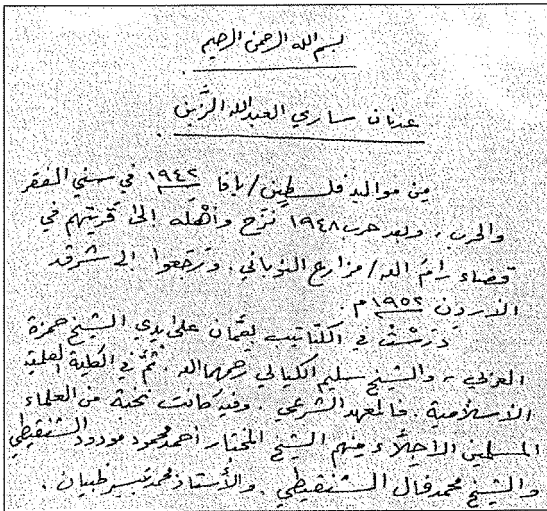 بسم الله الرحمن الرحيم
عدنان ساري العبدالله الزَّبن
من مواليد فلسطين/يافا ١٩٤٢ في سني الفقر
والحرب، وبعد حرب ١٩٤٨ نزح وأهْلَه إلى قريتهم في
قضاء رام الله/مزارع النوباني. ورَجَعوا إلى شرقد
الأردن ١٩٥٢م.
دَرَسْتُ في الكتاتيب بعَمّان على يدي الشيخ حمزة
العربي، والشيخ سليم الكيالي رحمهما الله. ثُمَّ في الكلية العلمية
الاسلامية. فالمعهد الشرعي. وفيه كانت نخبة من العلماء
المسلمين الأجلّاء منهم الشيخ المختار أحمد محمود مودود الشنقيطي
والشيخ محمد فال الشنقيطي. والأستاذ محمد تيسير ظبيان.